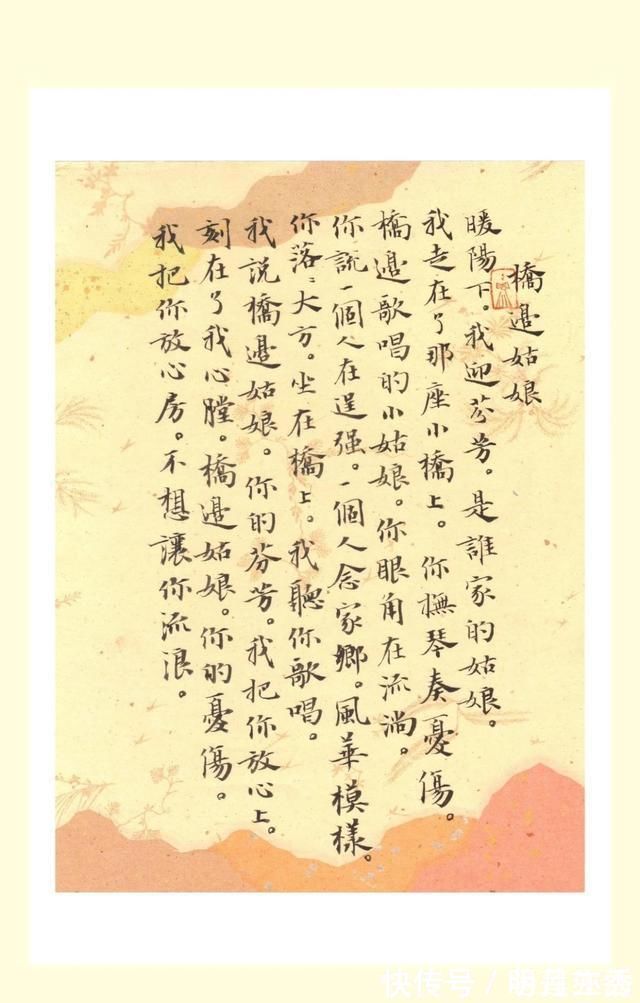 橋邉姑娘
暖陽下。我迎芬芳。是誰家的姑娘。
我走在了那座小橋上。你撫琴奏憂傷。
橋邉歌唱的小姑娘。你眼角在流淌。
你説一個人在逞强。一個人念家鄉。風華模樣。
你落〻大方。坐在橋上。我聽你歌唱。
我説橋邉姑娘。你的芬芳。我把你放心上。
刻在了我心膛。橋邉姑娘。你的憂傷。
我把你放心房。不想讓你流浪。
快传号/明月亦秀